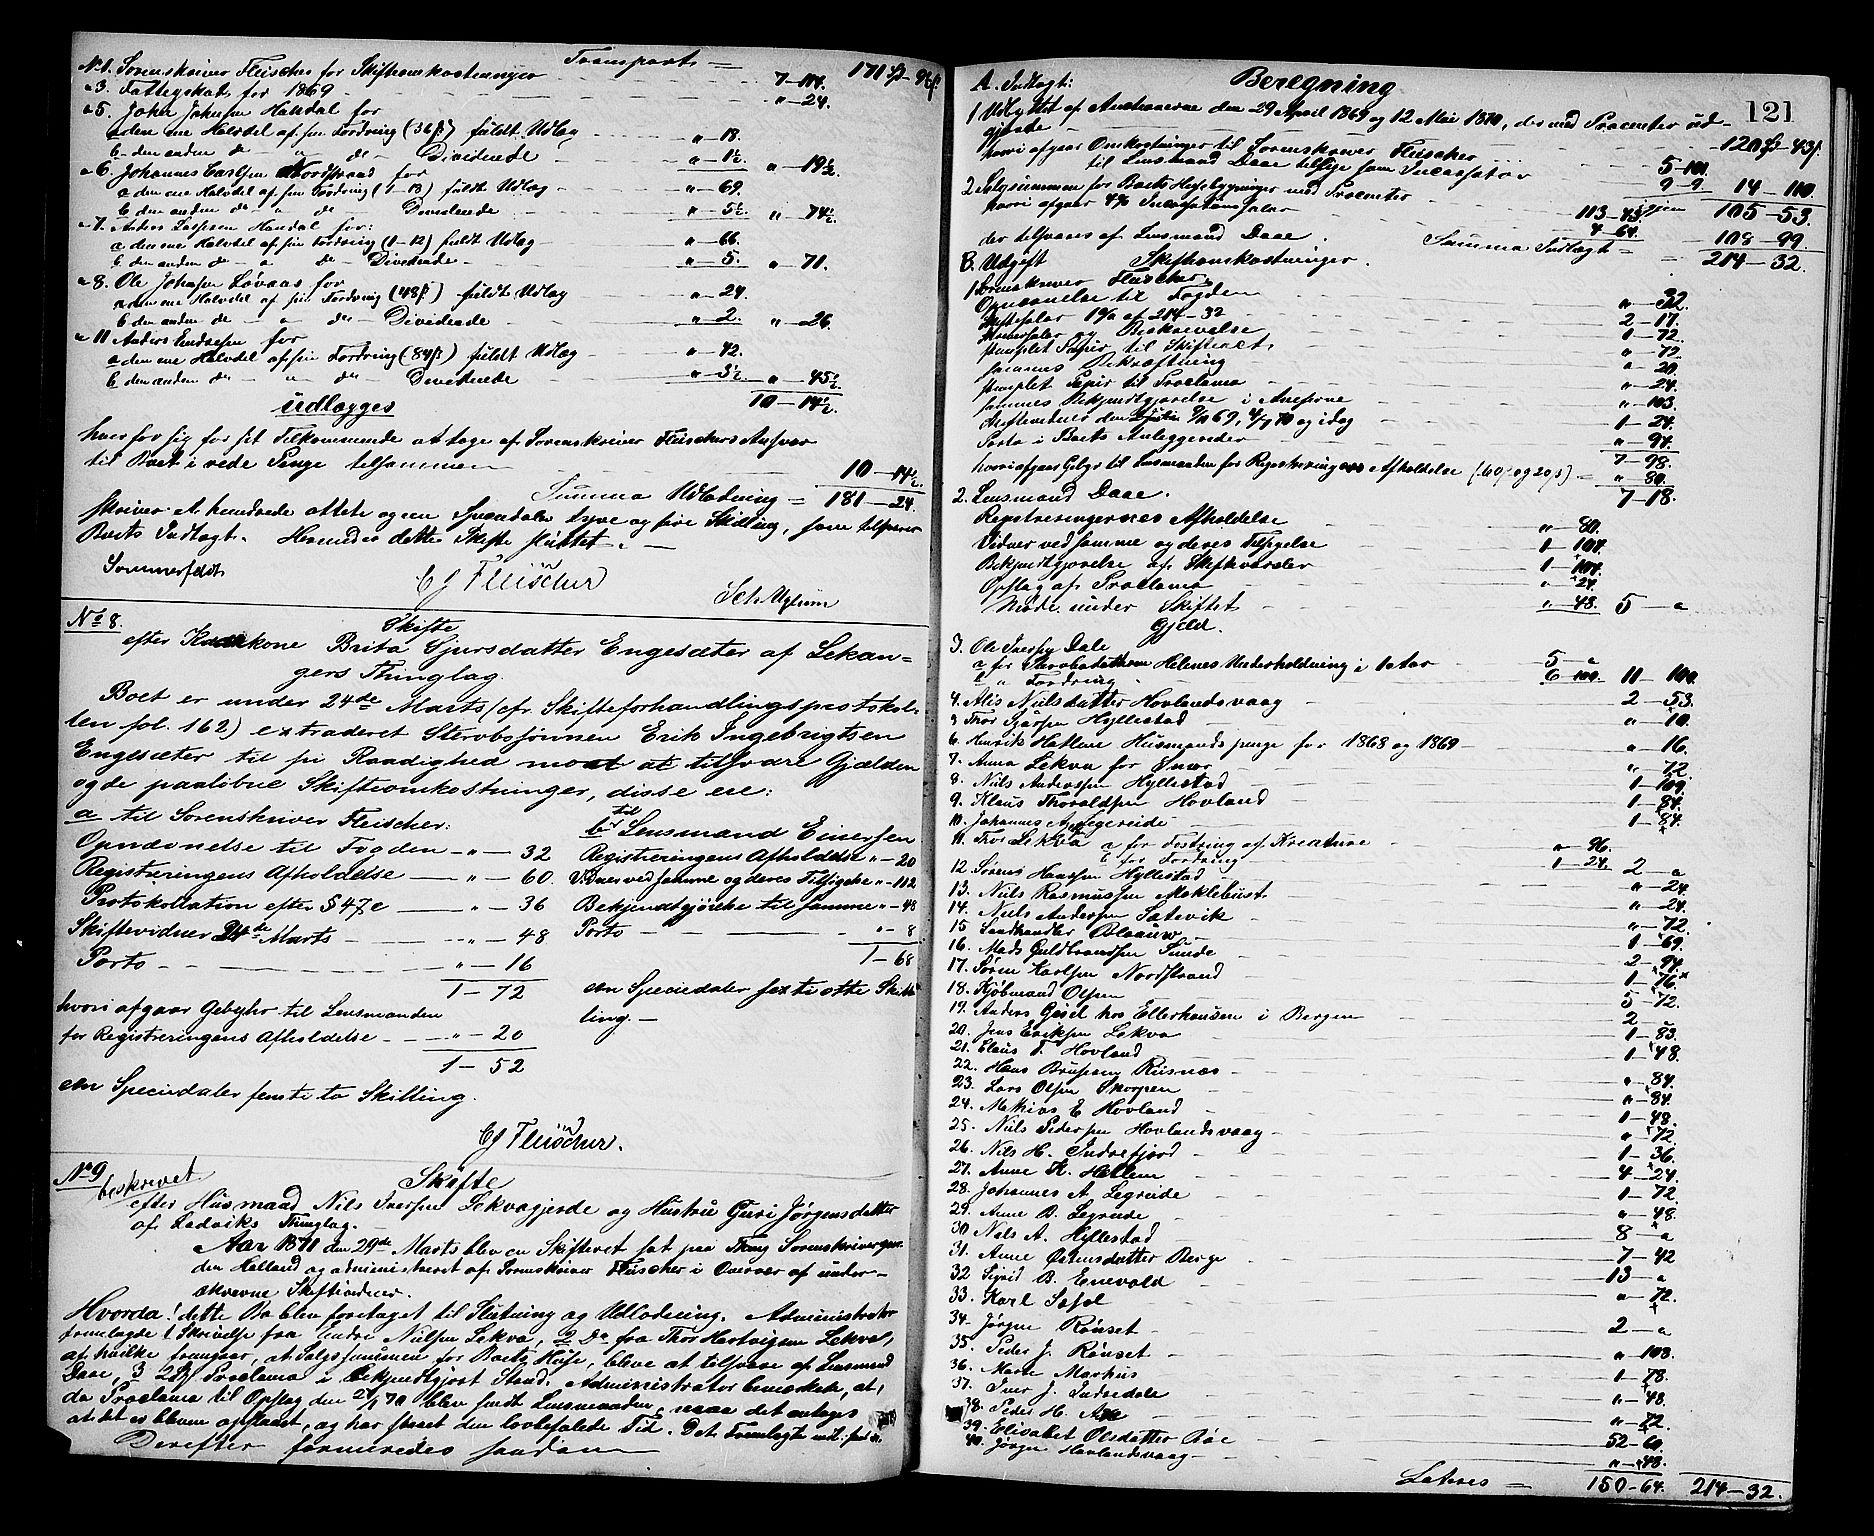 Transport = 171 β - 9½ β
No 1. Sorenskriver Fleischer for Skifteomkostninger 7-114.
" 3. Fattigskat for 1869 " - 24.
" 5. John Johnsen Handal for
a den ene Halvdel af sin Fordring (36 β) fuldt Udlæg " - 18.
b den anden do " do Dividende " - 1½. " - 19½
" 6. Johannes Carlsen Nordstrand for
a den ene Halvdel af sin Fordring (1-18) fuldt Udlæg " - 69.
b den anden do " do Dividende " - 5½ " - 74½
" 7. Anders Handal for:
a den ene Halvdel af sin Fordring (1-12) fuldt Udlæg " - 66.
b den anden do " do Dividende " - 5. " - 71.
" 8. Ole Johnsen Løvaas for
a den ene Halvdel af sin Fordring (48 β) fuldt Udlæg " - 24.
b den anden do " do Dividende " - 2. " - 26.
" 11 Anders Endresen for
a den ene Halvdel af sin Fordring (84 β) fuldt Udlæg " - 42.
b den anden do " do Dividende " - 3½. " - 45½
10 - 14½
udlægges
hver for sig for sit Tilkommende at tage af Sorenskriver Fleischers Ansvar
til Boet i rede Penge tilsammen 10 - 14½
Summa Udlodning = 181 - 24.
skriver et hundrede ottete og een Speciedaler tyve og fire Skilling, som tilsvarer
Boets Indtægt. Hermed er dette Skifte sluttet.
Sommerfeldt
CJ Fleischer
Sch. Myhren
No 8. Skifte
efter Kaarkone Brita Sjursdatter Engesæter af Lekan=
gers Thinglag.
Boet er under 24de Marts (cfr. Skifteforhandlingsprotokol-
len fol. 162) extraderet Stervbsønnen Erik Ingebrigtsen
Engesæter til fri Raadighed mod at tilsvare Gjælden
og de paaløbne Skifteomkostninger, disse ere:
a til Sorenskriver Fleischer:
Opnævnelse til Fogden " - 32
Registreringens Afholdelse " - 60.
Protokollation efter § 47 c " - 36
Skiftevidner 24de Marts " - 48
Porto " - 16
1 - 72
hvori afgaar Gebyhr til Lensmanden
for Registreringens Afholdelse " - 20
1 - 52
een Speciedaler femti to Skilling.
b til Lensmand Einersen
Registreringens Afholdelse " - 20
Vidner ved samme og deres Tilsigelse " - 112
Bekjendtgjørelse til samme " - 48
Porto " - 8
1 - 68
een Speciedaler sexti otte Skil-
ling.
CJ Fleischer.
No 9 Skifte
beskrevet
efter Husmand Nils Iversen Lekvagjerde og Hustru Guri Jørgensdatter
af Ladviks Thinglag.
Aar 1871 den 29de Marts blev en Skifteret sat paa Thing Sorenskrivergaar-
den Helland og administreret af Sorenskriver Fleischer i Overvær af under-
skrevne Skiftevidner.
Hvorda! dette Bo blev foretaget til Slutning og Udlodning. Administrator
fremlagde 1 Skrivelse fra Endre Nilsen Lekva, 2 Do fra Thor Hartvigsen Lekva,
af hvilke fremgaar, at Salgssummen for Boets Huse, bleve at tilsvare af Lensmand
Daae, 3 Proclama i bekjendtgjort Stand. Administrator bemærkede, at,
da Proclama til Opslag den blev sendt Lensmanden, maa det antages
at det er bleven opslaaet, og har staaet den lovbefalede Tid. Det Fremlagte
Derefter formeredes saadan
121
Beregning
A. Indtægt:
1 Udbyttet af Auctionerne den 29 April 1869 og 12 Mai 1870, der med Procenter ud-
gjorde 120 β - 43 β.
hvori afgaar Omkostninger til Sorenskriver Fleischer 5-101.
til Lensmand Daae tillige som Incassator 9-9. 14 - 110.
igjen 105 - 53.
2 Salgssummen for Boets Husebygninger med Procenter 113 - 43
hvori afgaar 4% Incassationssalær 4 - 64.
der tilsvares af Lensmand Daae. 108 - 99.
Summa Indtægt = 214 - 32.
B. Udgift Skifteomkostninger.
1 Sorenskriver Fleischer
Opnævnelse til Fogden " - 32.
Skiftesalær 1% af 214-32 2 - 17.
Skriversalær og Beskrivelse 1 - 72.
stemplet Papir til Skifteact " - 72
sammes Bekræftning " - 20.
stemplet Papir til Proclama " - 24.
sammes Bekjendtgjørelse i Aviserne " - 103.
Skiftevidner den 69, 70 og idag 1 - 24.
Porto i Boets Anliggender " - 94.
7 - 98.
hvori afgaar Gebyr til Lensmanden for Registreringernes Afholdelse (60 β og 20 β) = " - 80.
7 - 18.
2. Lensmand Daae.
Registreringernes Afholdelse " - 80.
Vidner ved samme og deres Tilsigelse 1 - 104.
Bekjendtgjørelse af Skiftevarsler 1 - 104.
Opslag af Proclama " - 24.
Møde under Skiftet " - 48. 5 - "
Gjæld.
3. Ole Iversen Dale
a for Stervbodatteren Helenes Underholdning i 1 Aar 5 - "
b " Fordring 6 - 100. 11 - 100.
4. Alis Nielsdatter Hovlandsvaag 2 - 53.
5 Thor Hyllestad " - 10.
6. Henrik Hatlene Husmandspenge for 1868 og 1869 " - 16.
7. Anna Lekva for " - 72.
8. Nils Anderssen Hyllestad 1 - 109.
9. Klaus Thoraldsen Hovland 1 - 84.
10. Johannes A. Legreide 1 - 84.
11. Thor Lekva a for Fostring af Kreature " - 96.
b for Fordring 1 - 24. 2 - "
12. Sørens Hanssen Hyllestad " - 24.
13. Niels Rasmussen Møklebust " - 24.
14. Niels Andersen Sætevik " - 72.
15 Landhandler Blaauw 1 - 69.
16. Mads Guldbrandsen Sunde 2 - 94.
17. Søren Karlsen Nordstrand 1 - 76.
18. Kjøbmand Olsen 5 - 72.
19. Anders Gjesil hos Ellerhausen i Bergen 2 - "
20. Jens Eriksen Lekva 1 - 83.
21. Claus T. Hovland 1 - 48.
22. Hans Risnæs " - 84.
23. Lars Olsen Skorpen " - 84.
24. Mathias E Hovland 1 - 48.
25. Nils Pedersen Hovlandsvaag " - 72.
26. Nils H. Indrefjord 1 - 36.
27. Anne K. Hellem 4 - 24.
28. Johannes A. Legreide 1 - 72.
29. Anne B. Legreide " - 48.
30 Nels A. Hyllestad 8 - "
31. Anne Østensdatter Berge 7 - 42
32 Sigrid B. Enevold 13 - "
33. Karl Sæsol " - 72.
34. Jørgen Rønset 2 - "
35. Peder J. Rønset " - 108.
36. Marte Markhus 1 - 78.
37. Iver J. Indredale " - 48.
38. Peder H. " - 72.
39. Elisabet Olsdatter Bøe 52 - 60.
40. Jørgen Hovlandsvaag " - 48.
Lateres = 150 - 64. 214 - 32.